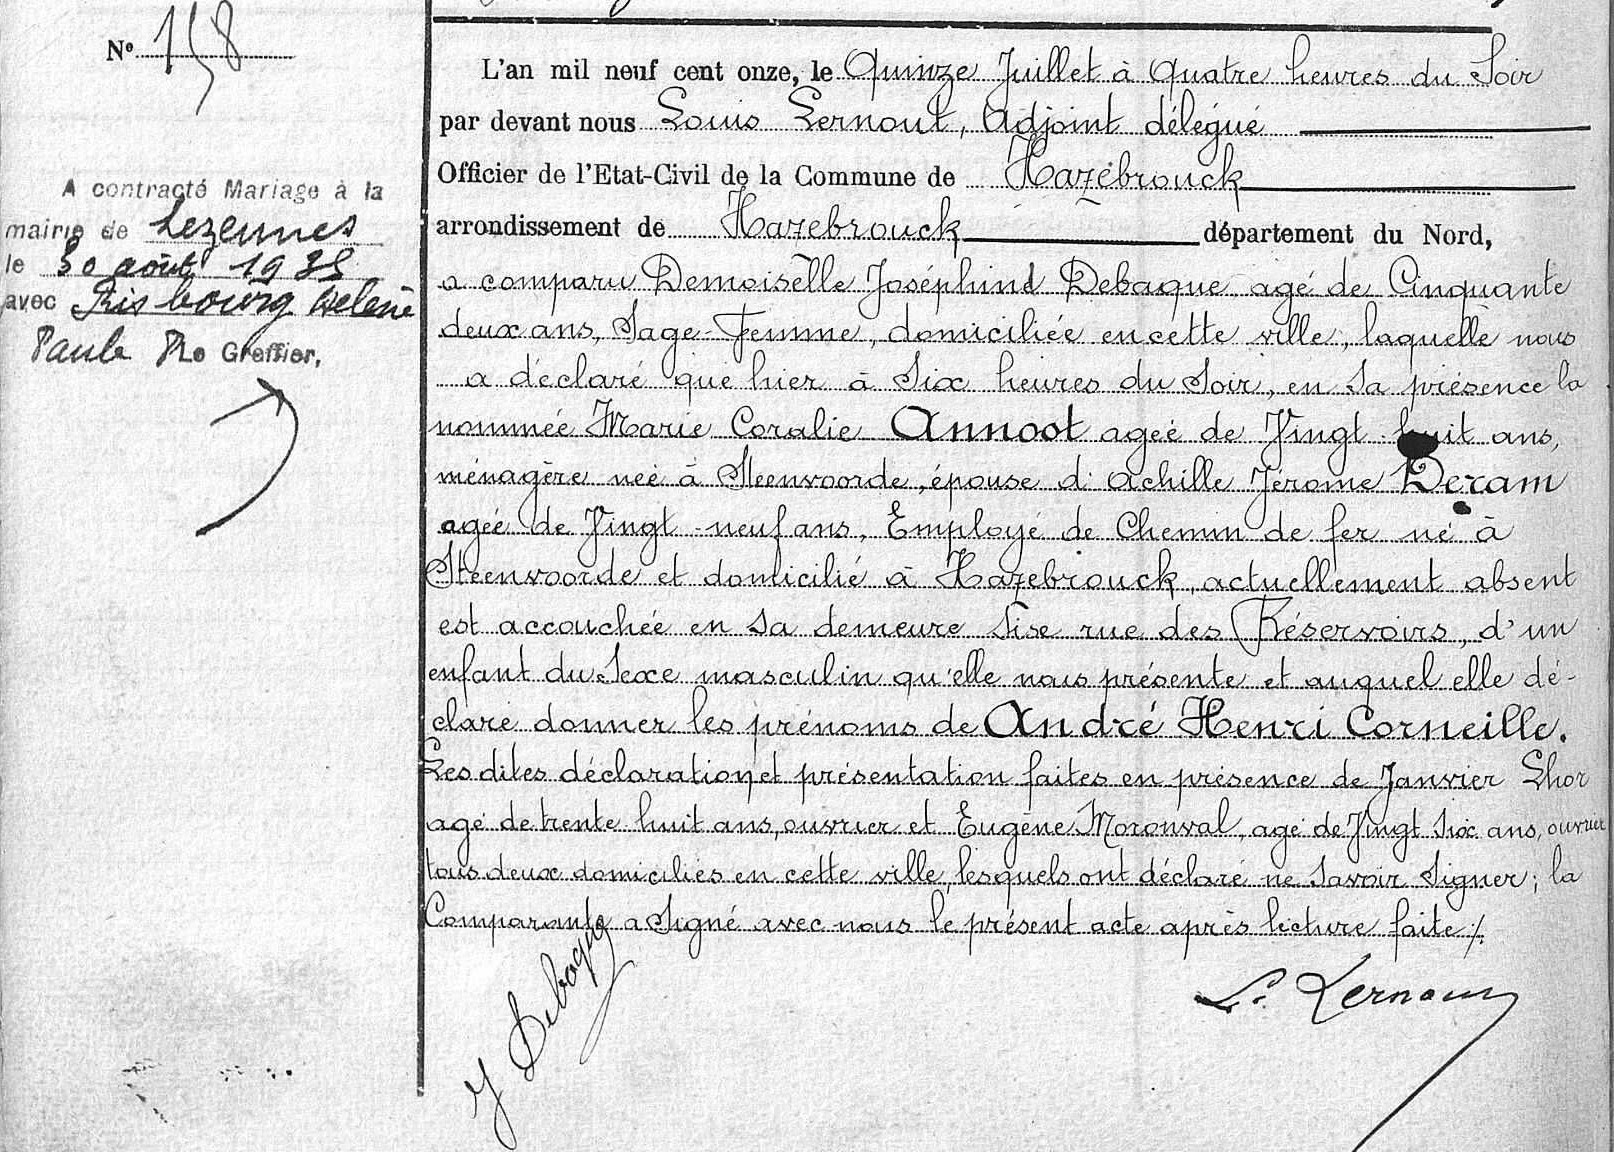 N° 158
A contracté Mariage à la
mairie de Lezennes
le 30 août 1935
avec Risbourg Helène
Paule Le Greffier,
L'an mil neuf cent onze, le Quinze Juillet à Quatre heures du Soir
par devant nous Louis Lernout, Adjoint délégué
Officier de l'Etat-Civil de la Commune de Hazebrouck
arrondissement de Hazebrouck département du Nord,
a comparu Demoiselle Joséphine Debaque agé de Cinquante
deux ans, Sage-Femme, domiciliée en cette ville, laquelle nous
a déclaré que hier à Six heures du Soir, en Sa présence la
nommée Marie Coralie Annoot ageé de Vingt huit ans,
ménagère neé à Steenvoorde, épouse d'Achille Jérome Deram
agée de Vingt-neuf ans, Employé de Chemin de fer né à
Steenvoorde et domicilié à Hazebrouck, actuellement absent
est accouchée en Sa demeure Sise rue des Réservoirs, d'un
enfant du Sexe masculin qu'elle nous présente et auquel elle dé-
clare donner les prénoms de André Henri Corneille.
Les dites déclaration et présentation faites en présence de Janvier Lhor
agé de trente huit ans, ouvrier et Eugène Moronval, agé de Vingt Six ans, ouvrier
tous deux domiciliés en cette ville, lesquels ont déclaré ne Savoir Signer; la
Comparante a Signé avec nous le présent acte après lecture faite ./.
J Debaque
L. Lernout